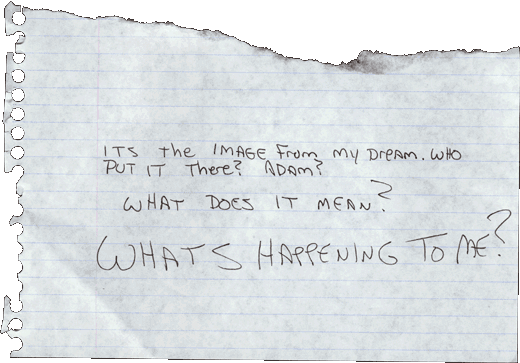 ITS the IMAGE From my DREAM. WHO
PUT IT There? ADAM?
WHAT DOES IT MEAN?
WHATS HAPPENING TO ME?